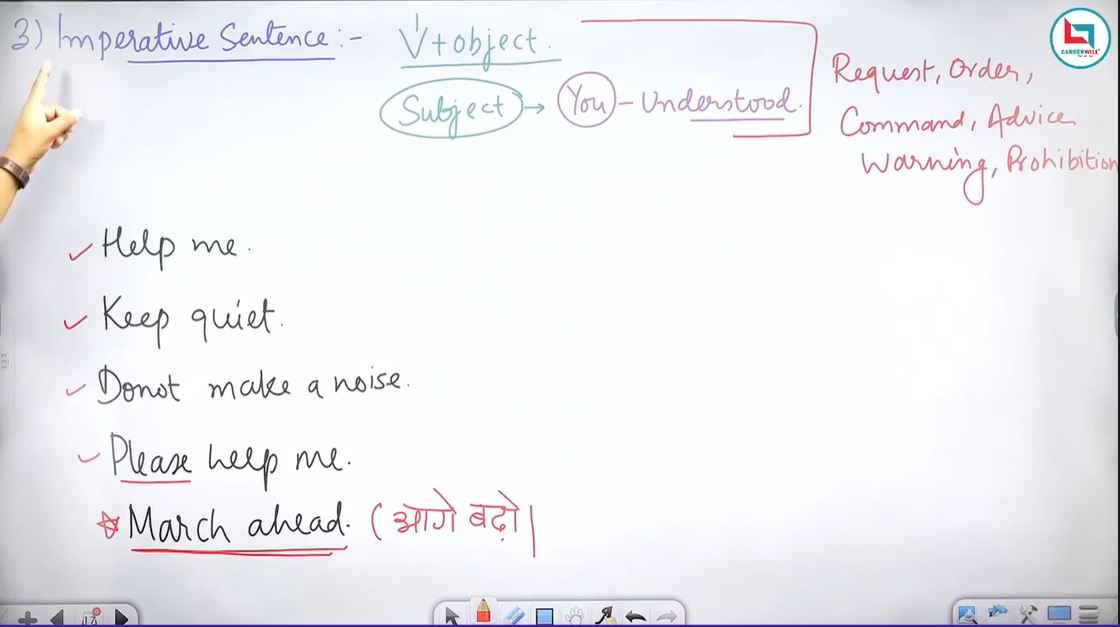 3) Imperative Sentence :- V¹ + object.
Subject → You - Understood.
Request, Order,
Command, Advice
Warning, Prohibition
CAREERWILL
✓ Help me.
✓ Keep quiet.
✓ Donot make a noise.
✓ Please help me.
☆ March ahead. (आगे बढ़ो|